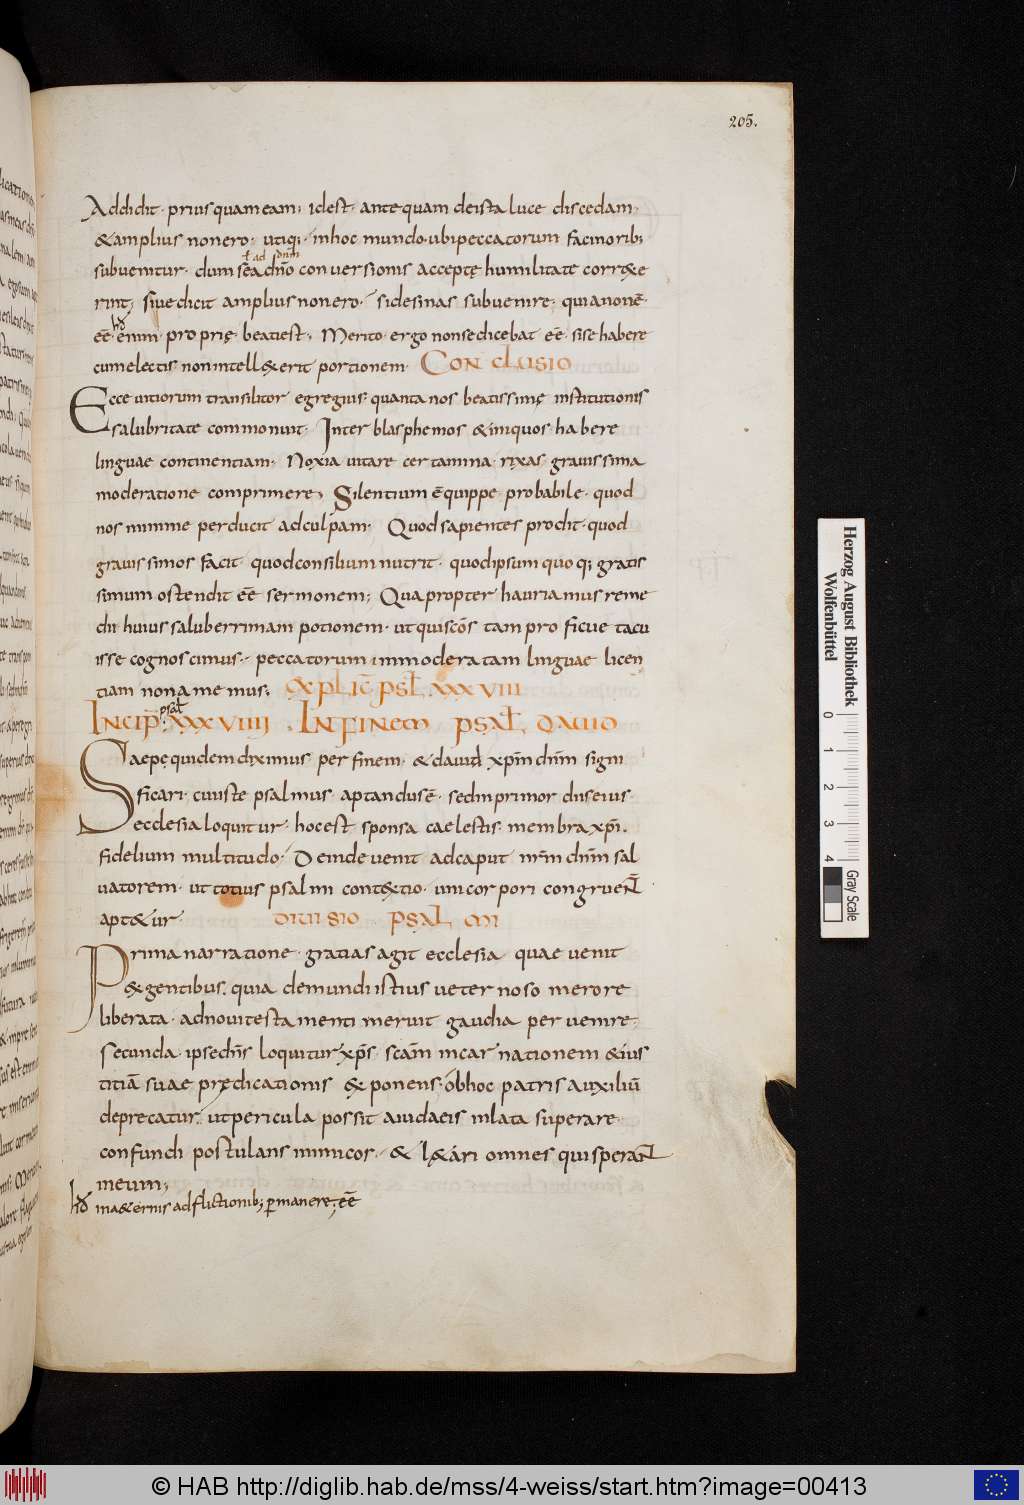 205.
Addidit · priusquam eam; idest · antequam deista luce discedam ·
& amplius nonero · utiq; · inhoc mundo · ubi peccatorum facinorib;
ł ad dnm
subuenitur · dum sea dño conuersionis acceptę humilitate correxe
rint; siuedicit amplius nonero · sidesinas subuenire · quia nonē ·
hð
eē · enim · proprię · beatiest; Merito · ergo nonse dicebat eē · sise habere
cum electis non intellexerit portionem · Conclusio
Ecce uitiorum transilitor egregius · quanta nos beatissimę institutionis
salubritate commonuit · Inter blasphemos & iniquos · habere
linguae continentiam · Noxia uitare certamina · rixas grauissima
moderatione comprimere, Silentium ē quippe probabile · quod
nos minime perducit adculpam · Quod sapientes prodit · quod
grauissimos facit · quod consilium nutrit · quod ipsum quoq; gratis
simum ostendit eē sermonem; Quapropter hauriamus reme
dii huius saluberrimam potionem · ut qui scōs tam pro ficue tacu
isse cognoscimus · peccatorum immoderatam linguae licen
tiam non amemus; Explic̄ psł xxxviii
psał
Incip̄ xxxviiii · In finem psał dauid
Saepe quidem diximus per finem · & dauid xpm̄ dnm̄ signi
ficari · cui iste psalmus aptandus ē · sed inprimor dns eius ·
ecclesia loquitur · hoc est sponsa caelestis · membra xpi ·
fidelium multitudo · Deinde uenit adcaput nr̄m dnm̄ sal
uatorem · ut totius psalmi contextio · uni corpori congruent
aptetur · Diuisio psalmi
Prima narratione · gratias agit ecclesia quae uenit
ex gentibus · quia demundi istius ueternoso merore
liberata · adnoui testamenti meruit gaudia peruenire ·
Secunda · ipse dn̄s loquitur xp̄s · scam̄ incarnationem & ius
titiā suae prędicationis exponens · ob hoc patris auxiliū
deprecatur · ut pericula possit aiudaeis inlata superare ·
confundi postulans inimicos · & lætari omnes qui sperant
in eum;
hð in aeternis adflictionib; permanere; eē
Herzog August Bibliothek
Wolfenbüttel
0 1 2 3 4
Gray Scale
© HAB http://diglib.hab.de/mss/4-weiss/start.htm?image=00413